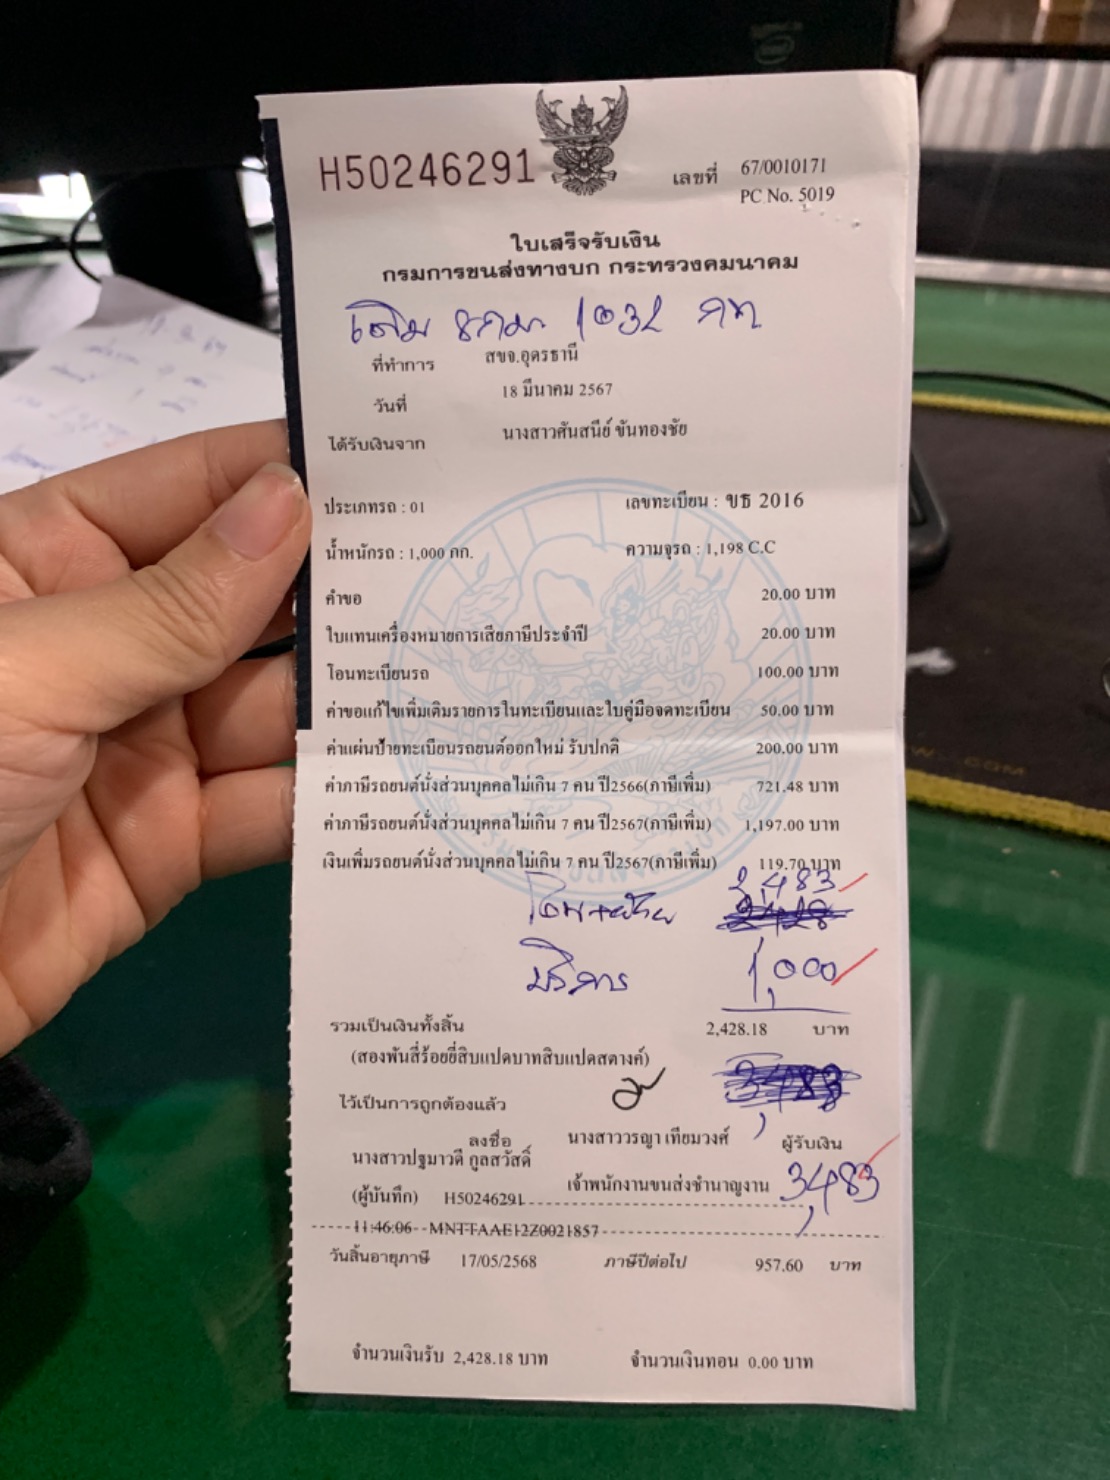 H50246291
เลขที่ 67/0010171
PC No. 5019
ใบเสร็จรับเงิน
กรมการขนส่งทางบก กระทรวงคมนาคม
เดิม 1032 กท
ที่ทำการ สขจ.อุดรธานี
วันที่ 18 มีนาคม 2567
ได้รับเงินจาก นางสาวศันสนีย์ ขันทองชัย
ประเภทรถ : 01 เลขทะเบียน : ขธ 2016
น้ำหนักรถ : 1,000 กก. ความจุรถ : 1,198 C.C
คำขอ 20.00 บาท
ใบแทนเครื่องหมายการเสียภาษีประจำปี 20.00 บาท
โอนทะเบียนรถ 100.00 บาท
ค่าขอแก้ไขเพิ่มเติมรายการในทะเบียนและใบคู่มือจดทะเบียน 50.00 บาท
ค่าแผ่นป้ายทะเบียนรถยนต์ออกใหม่ รับปกติ 200.00 บาท
ค่าภาษีรถยนต์นั่งส่วนบุคคลไม่เกิน 7 คน ปี2566(ภาษีเพิ่ม) 721.48 บาท
ค่าภาษีรถยนต์นั่งส่วนบุคคลไม่เกิน 7 คน ปี2567(ภาษีเพิ่ม) 1,197.00 บาท
เงินเพิ่มรถยนต์นั่งส่วนบุคคลไม่เกิน 7 คน ปี2567(ภาษีเพิ่ม) 119.70 บาท
2,483
โอน+ย้าย 2428
บริการ 1,000
รวมเป็นเงินทั้งสิ้น 2,428.18 บาท
(สองพันสี่ร้อยยี่สิบแปดบาทสิบแปดสตางค์)
ไว้เป็นการถูกต้องแล้ว
ลงชื่อ นางสาววรญา เทียมวงศ์ ผู้รับเงิน
นางสาวปฐมาวดี กูลสวัสดิ์
เจ้าพนักงานขนส่งชำนาญงาน 3,483
(ผู้บันทึก) H50246291
11:46:06 MNTTAAE12Z0021857
วันสิ้นอายุภาษี 17/05/2568 ภาษีปีต่อไป 957.60 บาท
จำนวนเงินรับ 2,428.18 บาท จำนวนเงินทอน 0.00 บาท